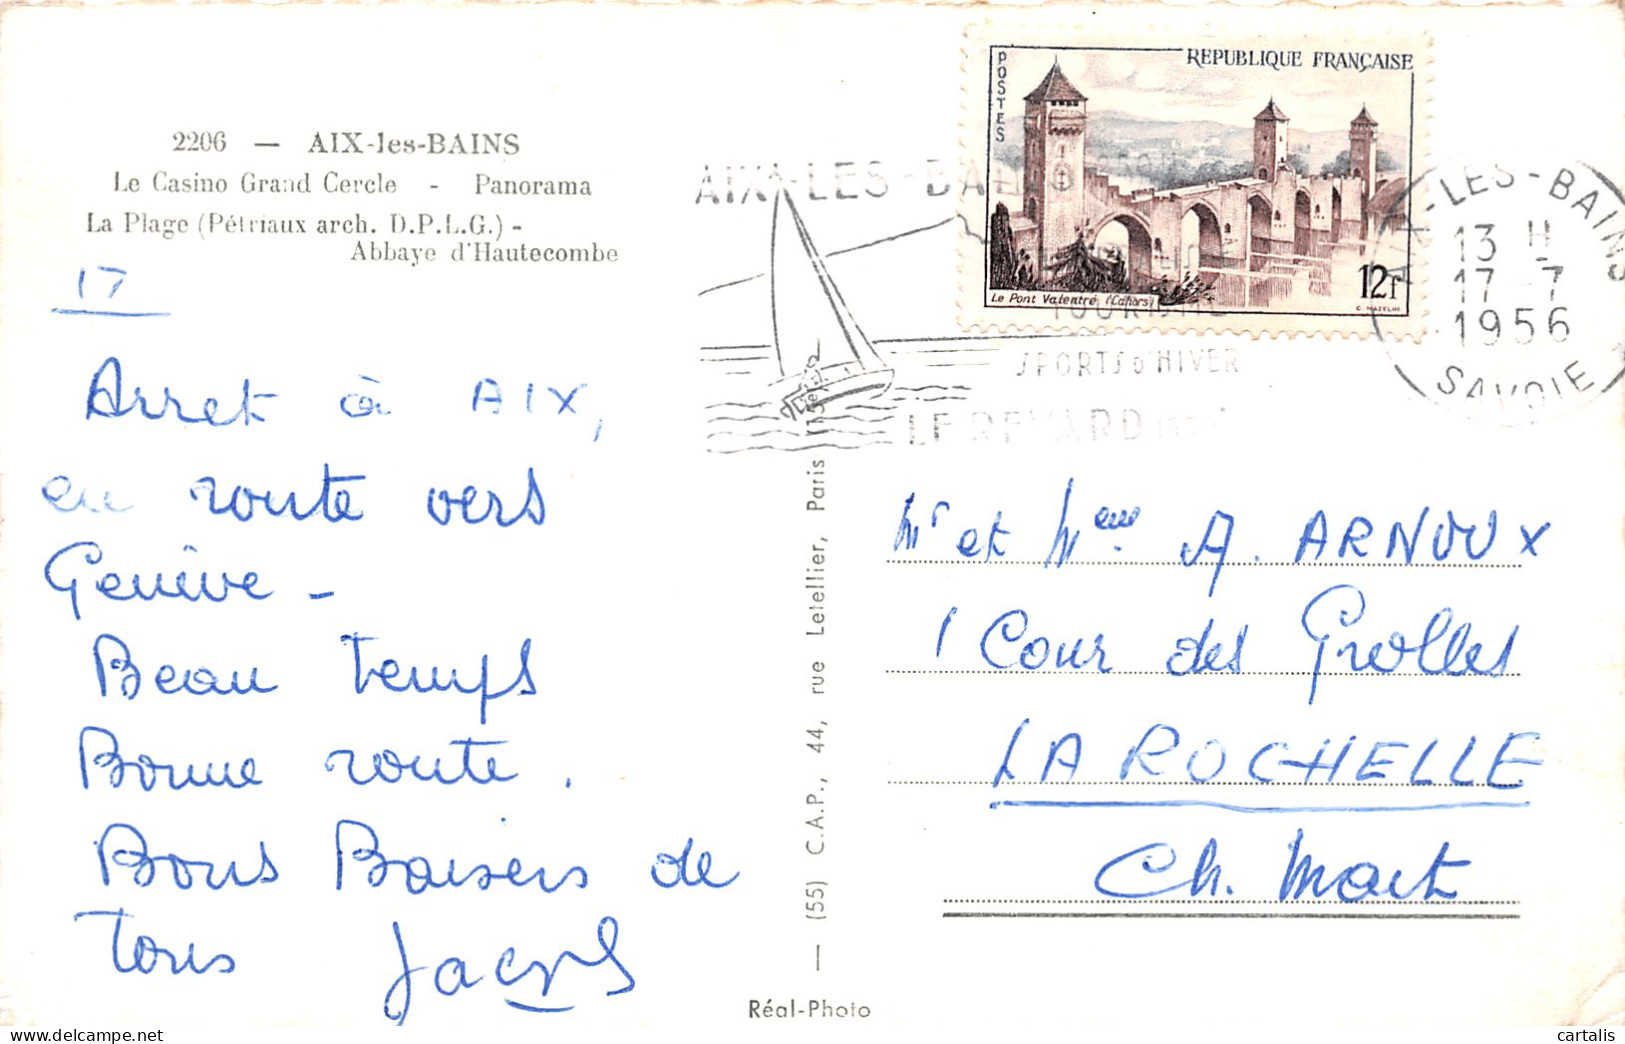 2206 — AIX-les-BAINS
Le Casino Grand Cercle - Panorama
La Plage (Pétriaux arch. D.P.L.G.) -
Abbaye d'Hautecombe
17
Arret à AIX,
en route vers
Genève -
Beau temps
Bonne route.
Bons Baisers de
tous Jacques
POSTES
REPUBLIQUE FRANÇAISE
Le Pont Valentré (Cahors)
12F
C. HAZELIN
AIX-LES-BAINS
TOURISME
SPORTS D'HIVER
LE REVARD
AIX-LES-BAINS
13 H
17-7
1956
SAVOIE
— (55) C.A.P., 44, rue Letellier, Paris (15e) —
Mr et Mme A. ARNOUX
1 Cour des Grolles
LA ROCHELLE
Ch. Mart
Réal-Photo
cartalis